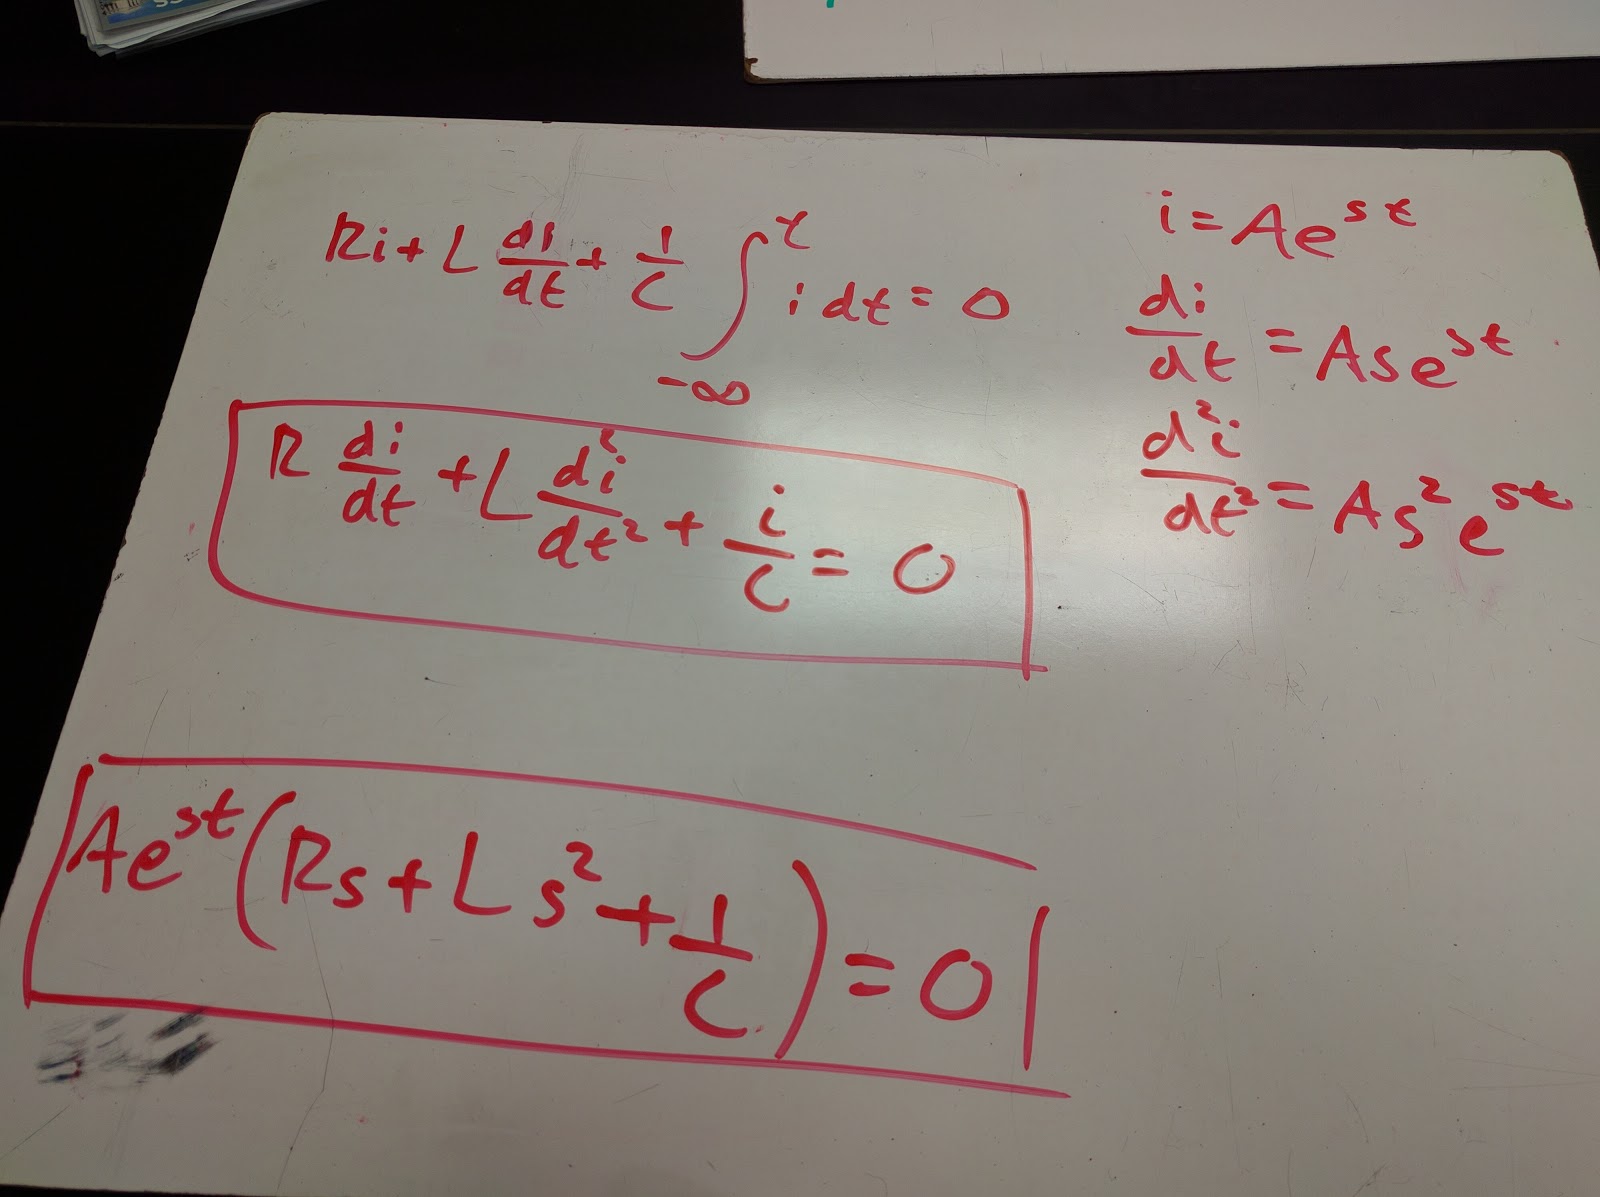 Ri + L di/dt + 1/C ∫_{-∞}^{t} i dt = 0
R di/dt + L d²i/dt² + i/C = 0
Ae^{st}(Rs + Ls² + 1/C) = 0
i = Ae^{st}
di/dt = Ase^{st}
d²i/dt² = As²e^{st}